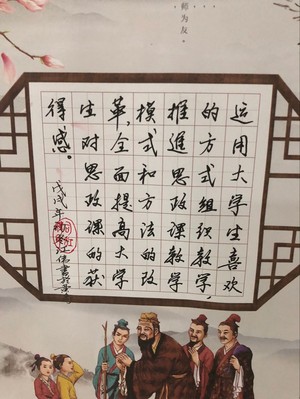 师为友。
运用大学生喜欢
的方式组织教学，
推進思政课教学
模式和方法的改
革，全面提高大学
生对思政课的获
得感。
戊戌年